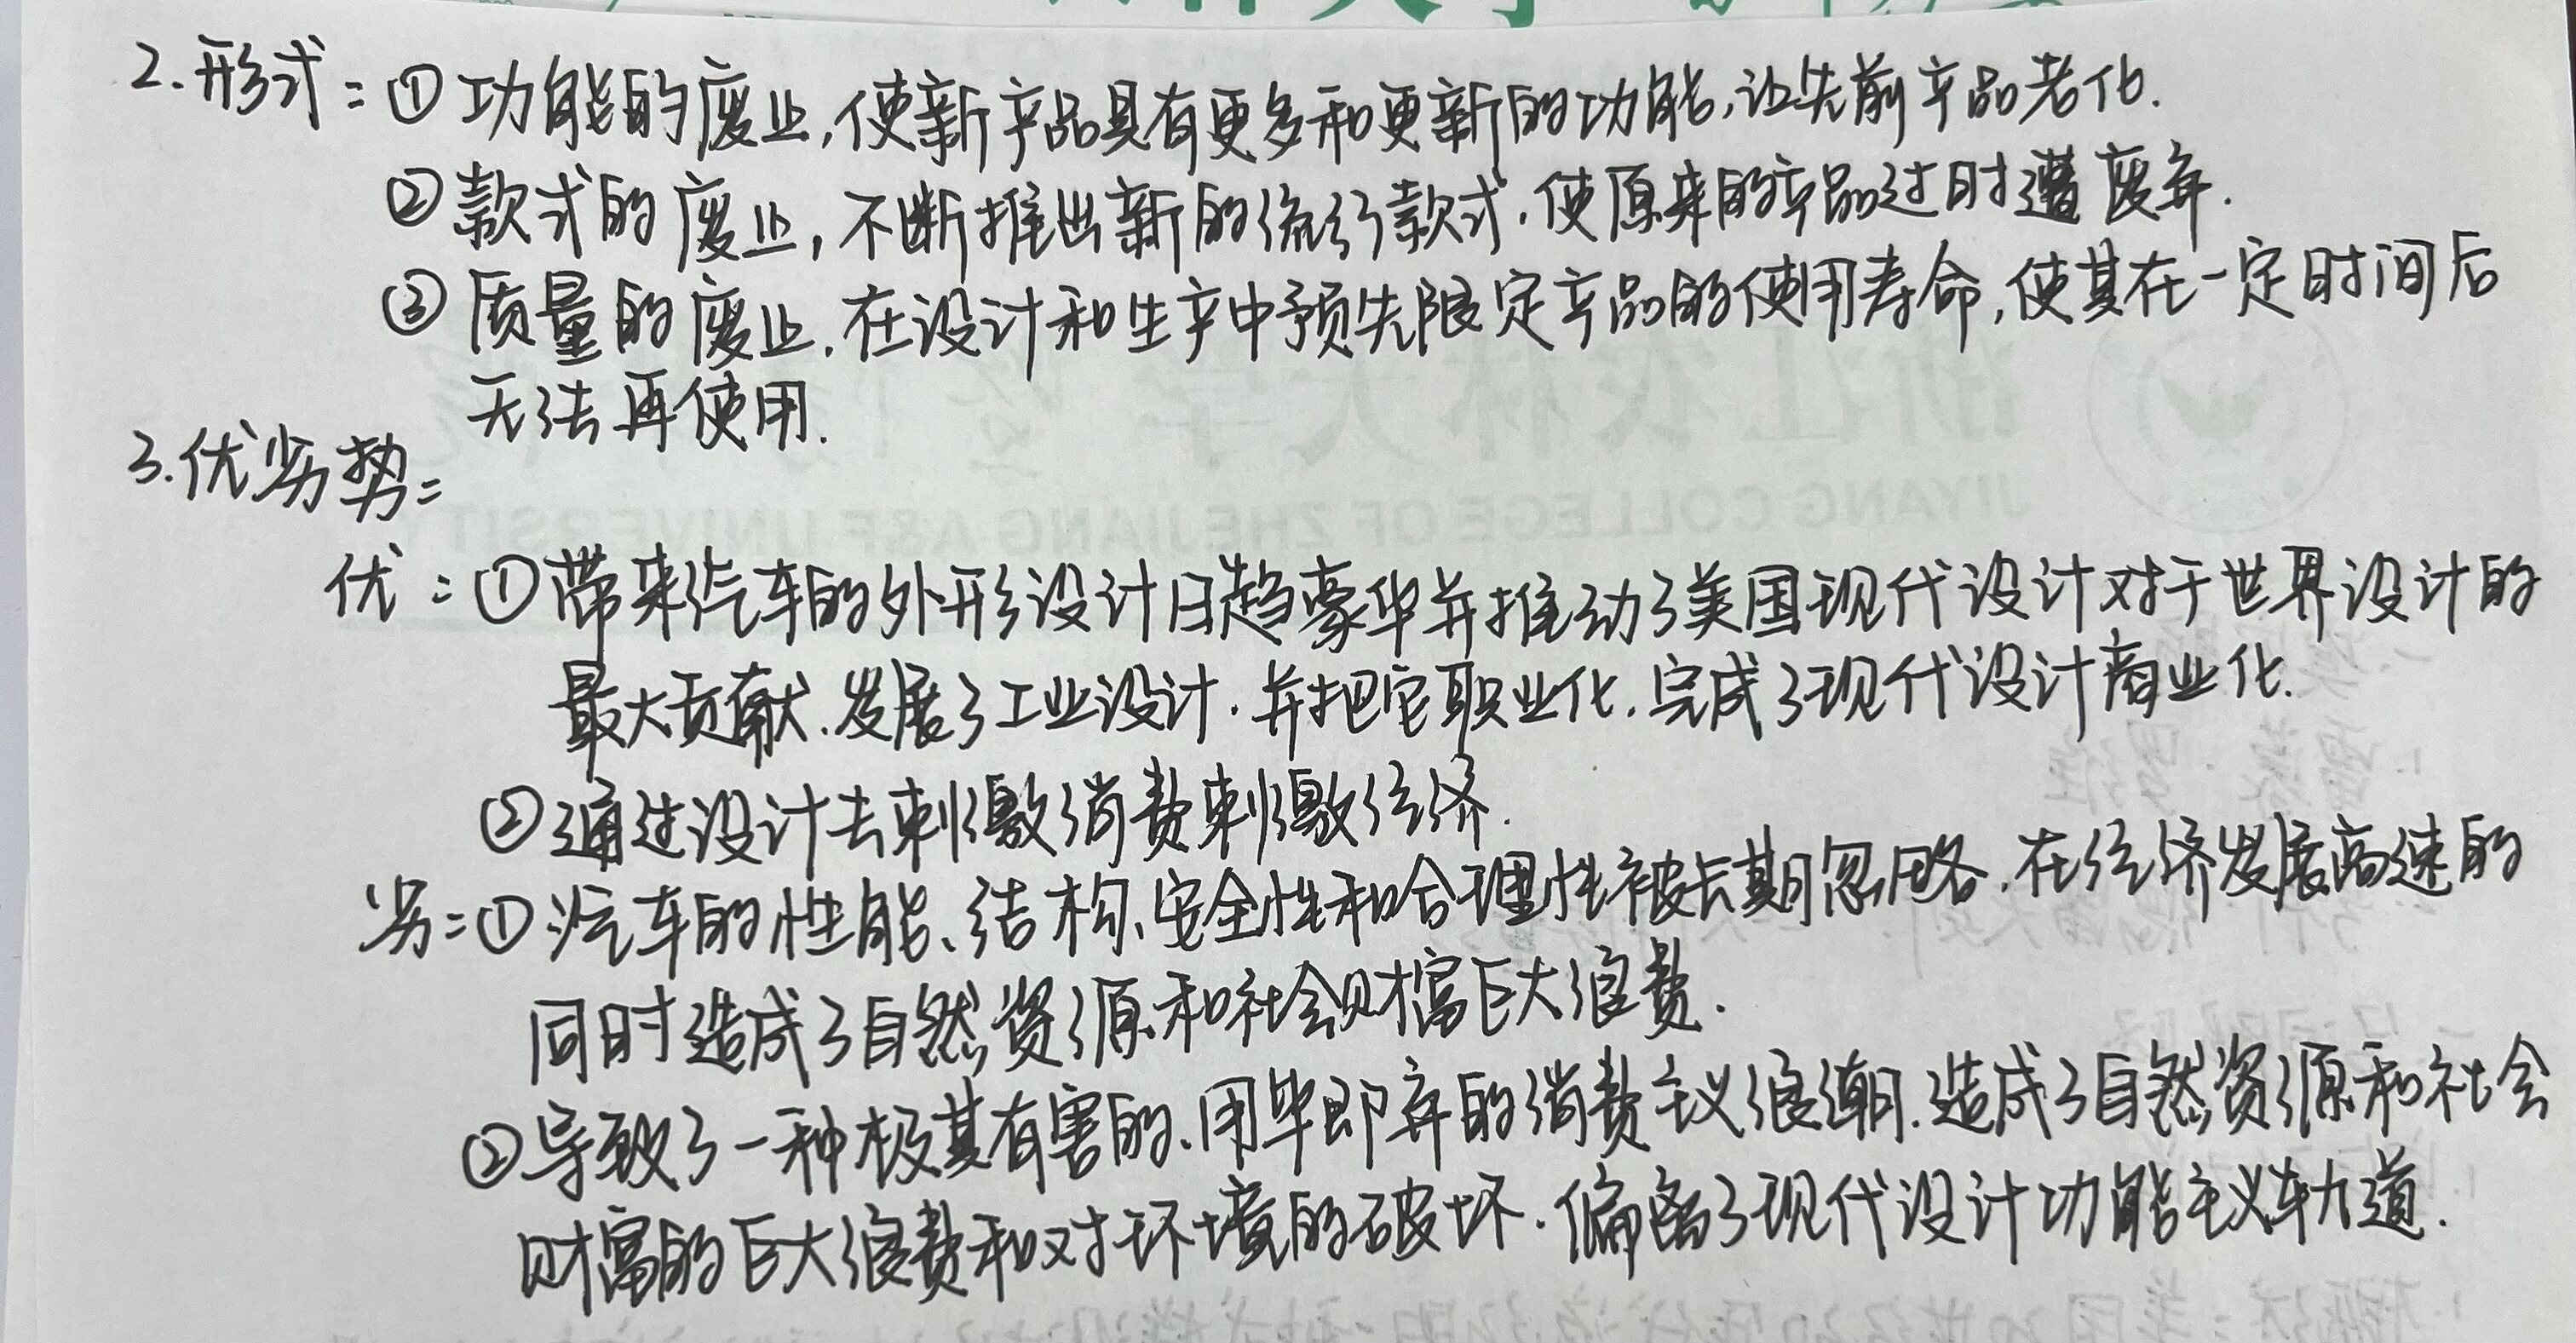 2.形式:①功能的废止,使新产品具有更多和更新的功能,让先前产品老化.
②款式的废止,不断推出新的流行款式,使原来的产品过时遭废弃.
③质量的废止.在设计和生产中预先限定产品的使用寿命,使其在一定时间后
无法再使用.
3.优劣势:
优:①带来汽车的外形设计日趋豪华并推动了美国现代设计对于世界设计的
最大贡献.发展了工业设计.并把它职业化.完成了现代设计商业化.
②通过设计去刺激消费刺激经济.
劣:①汽车的性能、结构、安全性和合理性被长期忽略.在经济发展高速的
同时造成了自然资源和社会财富巨大浪费.
②导致了一种极其有害的、用毕即弃的消费主义浪潮.造成了自然资源和社会
财富的巨大浪费和对环境的破坏.偏离了现代设计功能主义轨道.
JIYANG COLLEGE OF ZHEJIANG A&F UNIVERSITY